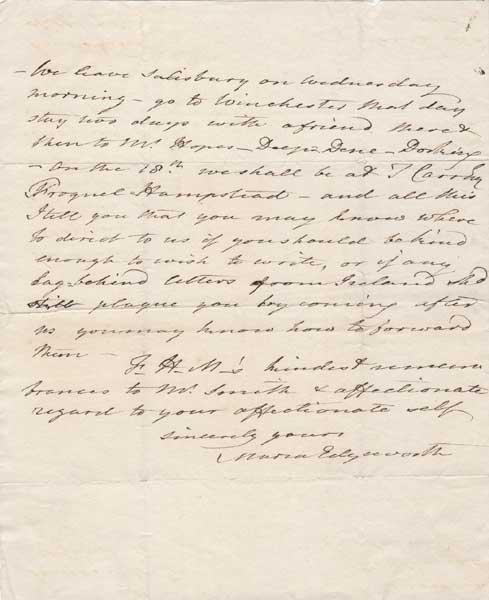 - We leave Salisbury on Wednesday
morning - go to Winchester that day
stay two days with a friend there &
then to Mr. Hopes - Deep-Dene - Dorking
- On the 18th we shall be at T Carr's
Frognel-Hampstead - and all this
I tell you that you may know where
to direct to us if you should be kind
enough to wish to write, or if any
lag-behind letters from Ireland shd
still plague you by coming after
us you may know how to forward
them -
F H M's kindest remem
brances to Mr. Smith & affectionate
regard to your affectionate self
sincerely yours
Maria Edgeworth